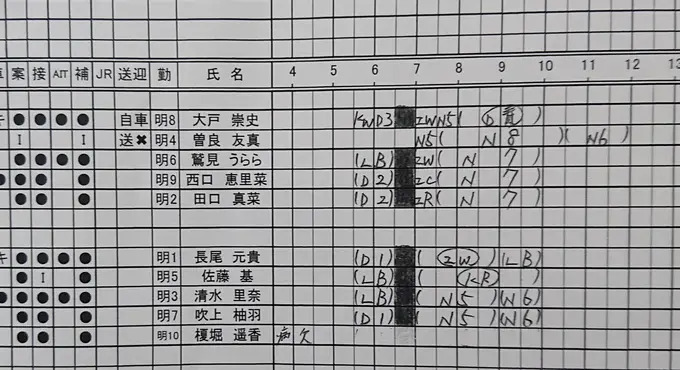 案 接 AIT 補 JR 送迎 勤 氏 名 4 5 6 7 8 9 10 11 12 13
キ ● ● ● ● 自車 明8 大戸 崇史 KWD3 ZWN5( D )
I I 送✖ 明4 曽良 友真 N5( N 8 )( N6 )
● ● ● ● 明6 鷲見 うらら (LB) ZW( N 7 )
● ● ● ● 明9 西口 恵里菜 (D2) ZC( N 7 )
● ● ● 明2 田口 真菜 (D2) ZR( N 7 )
キ ● ● ● ● 明1 長尾 元貴 (D1) ( ZW )( LB )
● I ● 明5 佐藤 基 (LB) ( KR )
● ● ● ● ● 明3 清水 里奈 (LB) ( N5 )( N6 )
● ● ● 明7 吹上 柚羽 (D1) ( N5 )( N6 )
● ● 明10 榎堀 遥香 病欠